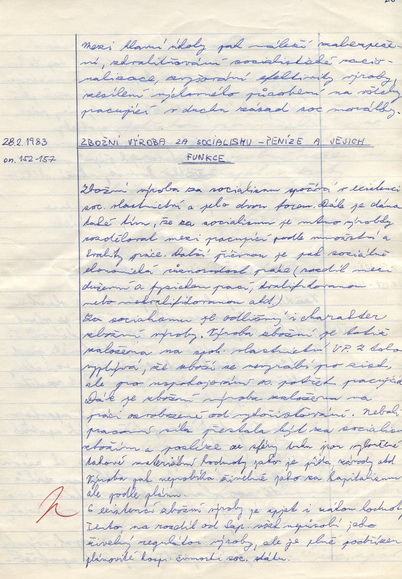 Mezi hlavní úkoly pak náleží zabezpeče-
ní, zkvalitňování socialistické racio-
nalizace, zvyšování efektivity výroby,
zesílení výchovného působení na
pracující v duchu zásad soc. morálky.
28.2.1983
on. 152-157
ZBOŽNÍ VÝROBA ZA SOCIALISMU - PENÍZE A JEJICH
FUNKCE
Zbožní výroba za socialismu spočívá v existenci
soc. vlastnictví a jeho dvou forem. Dále je dána
také tím, že za socialismu je nutno výrobky
rozdělovat mezi pracující podle množství a
kvality práce. Další příčinou je pak sociálně
ekonomická různorodost práce (rozdíl mezi
duševní a fyzickou prací, kvalifikovanou
nebo nekvalifikovanou atd.)
Za socialismu je odlišný i charakter
zbožní výroby. Výroba zboží je totiž
založena na spol. vlastnictví VP. Z toho
vyplývá, že zboží se nevyrábí pro zisk,
ale pro uspokojování potřeb pracujících.
Dále je zbožní výroba založena na
práci osvobozené od vykořisťování. Neboli
pracovní síla přestala být za socialismu
zbožím a posléze ze sféry trhu jsou vyloučené
takové materiální hodnoty jako je půda, závody atd.
Výroba pak neprobíhá živelně jako za kapitalismu
ale podle plánu.
S existencí zbožní výroby je spjat i zákon hodnoty.
Tento na rozdíl od kap. však nepůsobí jako
živelný regulátor výroby, ale je plně podřízen
plánovité hosp. činnosti soc. státu.